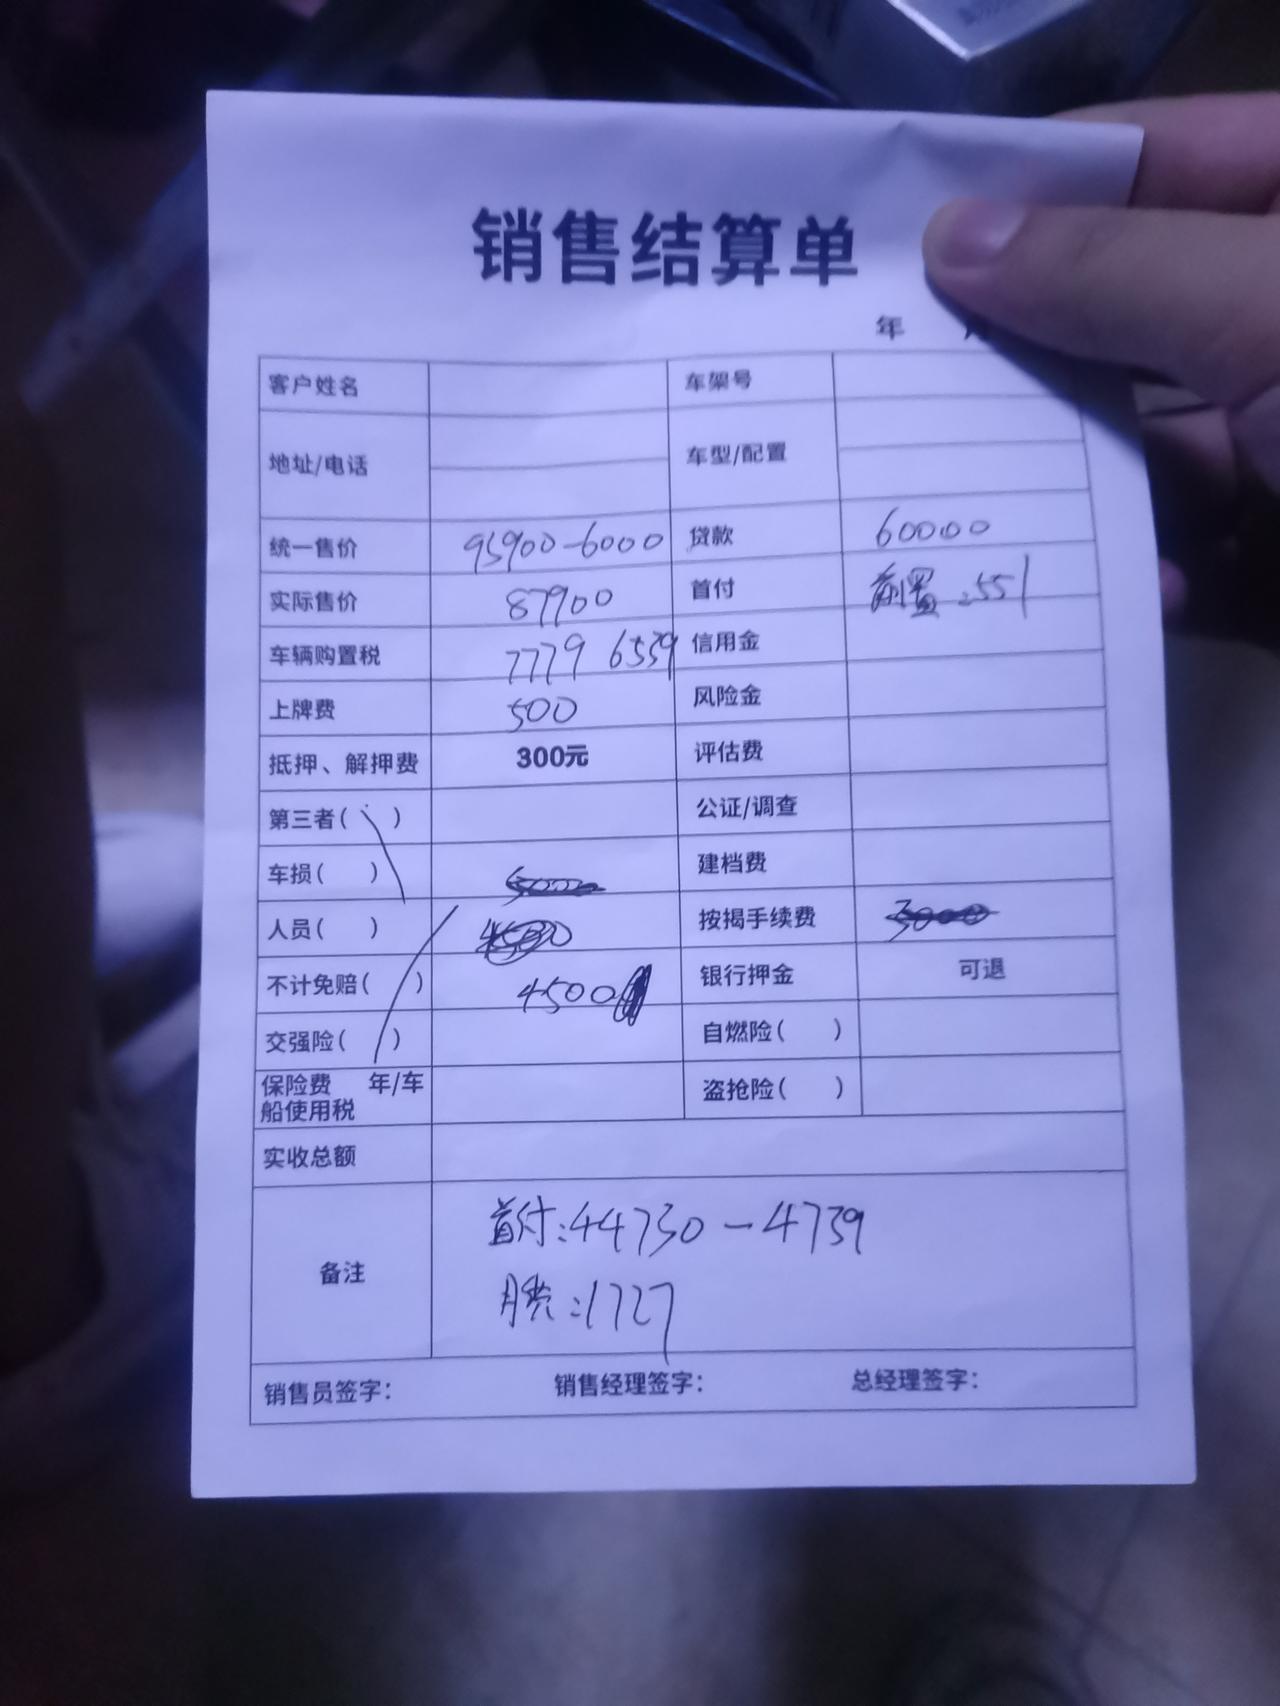 销售结算单
年
客户姓名 车架号
地址/电话 车型/配置
统一售价 95900-6000 贷款 60000
实际售价 87900 首付 前置:551
车辆购置税 7779 6539 信用金
上牌费 500 风险金
抵押、解押费 300元 评估费
第三者( ) 公证/调查
车损( ) 建档费
人员( ) 4500 按揭手续费 3000
不计免赔( ) 4500 银行押金 可退
交强险( ) 自燃险( )
保险费 年/车 盗抢险( )
船使用税
实收总额
备注 首付:44730-4739
月费:1727
销售员签字: 销售经理签字: 总经理签字: